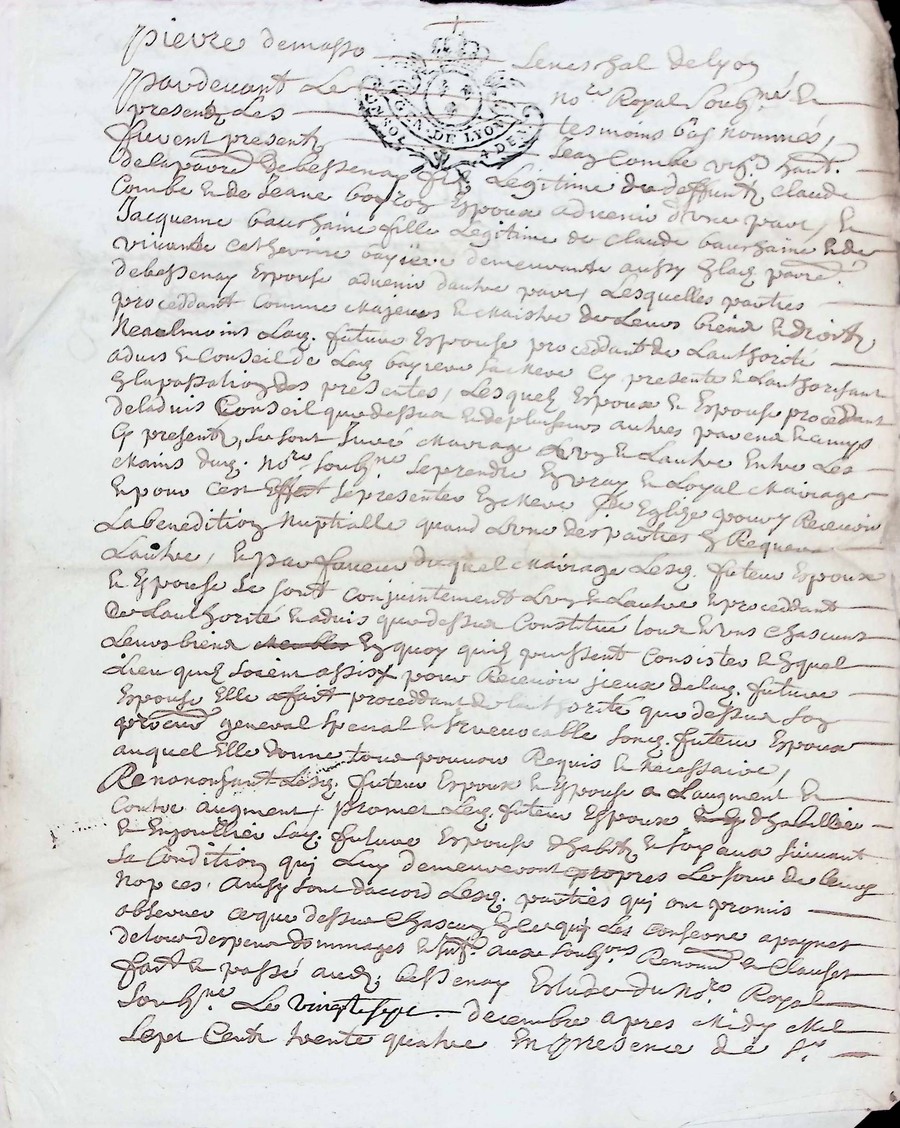 pierre demasso Seneschal de lyon
pardevant Le no.re Royal soubz.né &
presend Les tesmoins bas nommés,
furent present Jean Combe vig.n hant.
de la parr.e de bessenay fils Legitime de deffunt Claude
Combe & de Jeane Espoux advenir d'une part, &
Jacqueme bourchaine fille Legitime de Claude bourchaine & de
vivante catherine demeurante aussy en la parr.e
de bessenay Espouse advenir d'autre part, Lesquelles parties
proceddant Comme Majeurs & Maistre de Leurs biens & droits
Neaulmoins Lad. future Espouse proceddant de L'authorité
advis & Conseil de Lad. sa Mere Cy presente & L'authorisant
a La passation des presentes, Lesquels Espoux & Espouse proceddant
de l'advis Conseil que dessus & de plusieurs autres parens & amys
Cy presents, Se sont Juré Mariage L'un & L'autre Entre Les
Mains dud. No.re soubz.ne se prendre En vray & Loyal Mariage
& pour Cest Effet se presenter En s.te Mere Eglise pour y Recevoir
La benedition Nuptialle quand L'une des parties En Requera
L'autre, & par faveur duquel Mariage Lesd. futeur Espoux
& Espouse se sont Conjointement L'un & L'autre & proceddant
De L'authorité & advis que dessus Constitué tous & uns chascuns
Leurs biens En quoy quils puissent Consister & En quel
Lieu quils soient assis pour Recevoir jceux de lad. future
Espouse Elle a fait proceddant de l'authorité que dessus son
procur.r general special & Irrevocable Sond. futeur Espoux
auquel Elle donne tout pouvoir Requis & Necessaire,
Renoncant Lesd. futeur Espoux & Espouse a L'augment &
Contre augment, promet Led. futeur Espoux d'habillier
& Enjoullier Lad. future Espouse d'habits & Joyaux suivant
sa Condition qui Luy demeureront propres Le Jour de Leurs
Nopces. Ainsy sont d'accord Lesd. parties qui ont promis
observer ce que dessus Chascun En ce qui Les Conserne a payne
de tous despens dommages & Int.s aux soubz.ons Renonc.ons & Clauses
fait & passé aud. bessenay Estude du No.re Royal
soubz.ne Le vingt sept decembre apres Midy Mil
Sept Cents trente quatre En presence de S.r